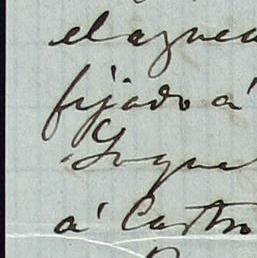 el ague
fijado á
Yogue
á Castro